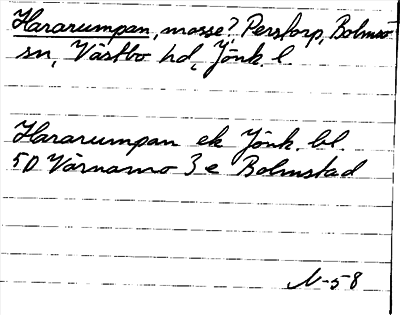 Hararumpan, mosse? Perstorp, Bolmsö
sn, Västbo hd, Jönk. l
Hararumpan ek Jönk. bl.
5D Värnamo 3 e Bolmstad
N-58